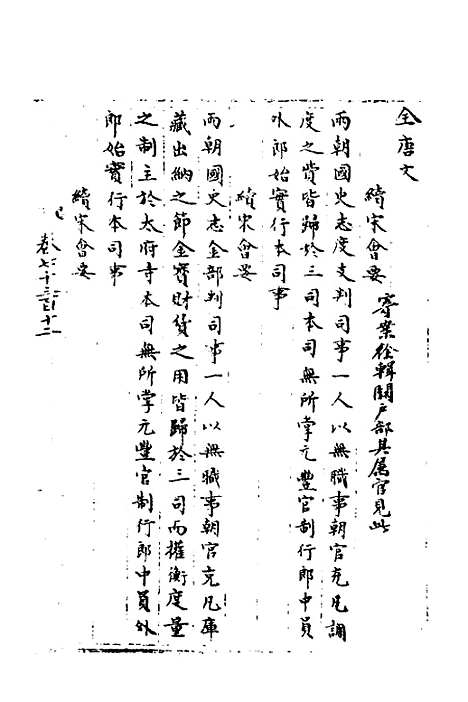 全唐文
續宋會要 寄案徐輯闕戶部其屬官見此
兩朝國史志度支判司事一人以無職事朝官充凡調
度之費皆歸於三司本司無所掌元豐官制行郎中員
外郎始實行本司事
續宋會要
兩朝國史志金部判司事一人以無職事朝官充凡庫
藏出納之節金寶財貨之用皆歸於三司而權衡度量
之制主於太府寺本司無所掌元豐官制行郎中員外
郎始實行本司事
續宋會要
卷七千三百十二